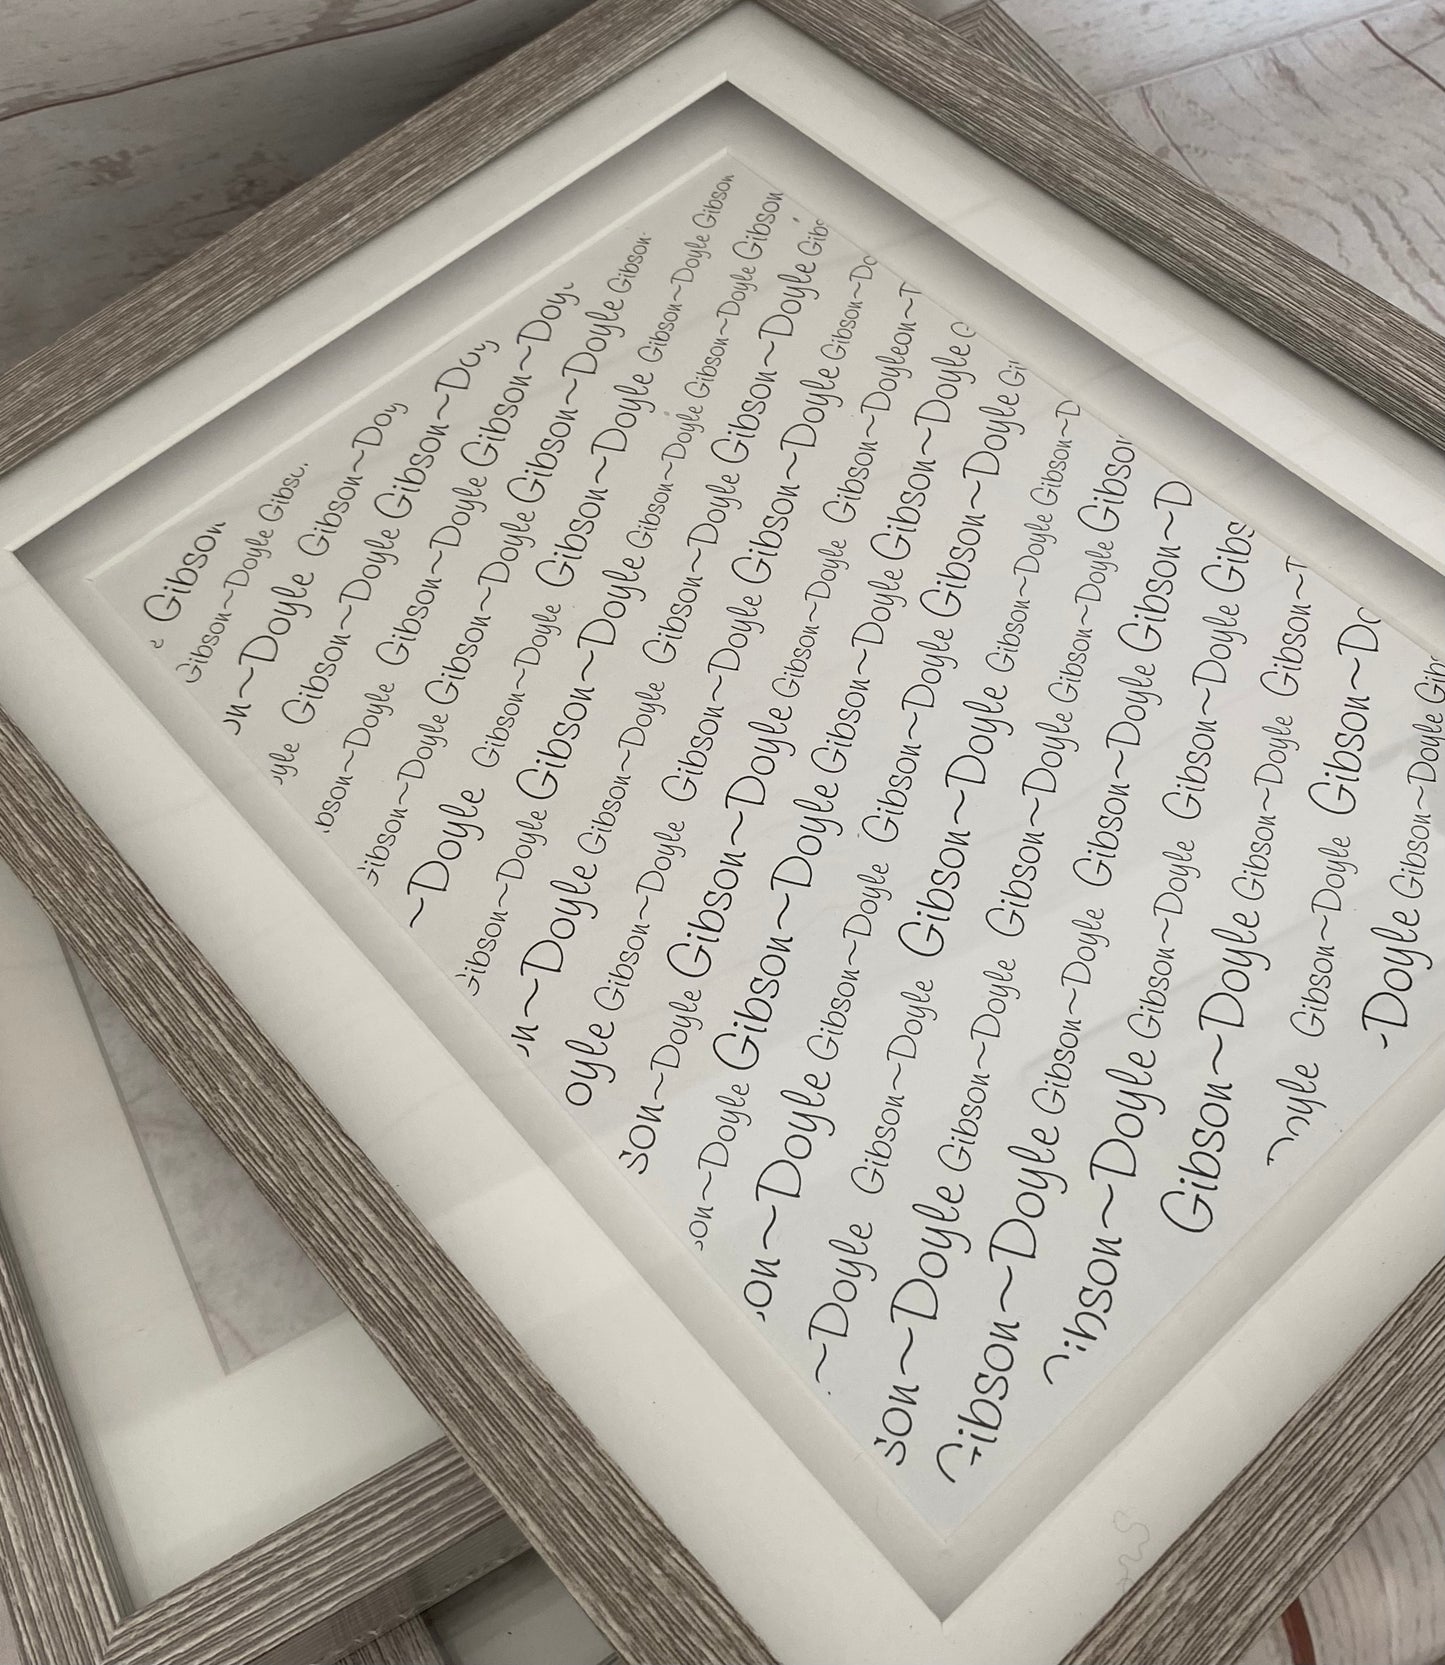 e Gibson
Gibson~Doyle Gibso
on~Doyle Gibson~Doy
yle Gibson~Doyle Gibson~Doy
bson~Doyle Gibson~Doyle Gibson~Doy
Gibson~Doyle Gibson~Doyle Gibson~Doyle Gibson
~Doyle Gibson~Doyle Gibson~Doyle Gibson~Doyle Gibson
Gibson~Doyle Gibson~Doyle Gibson~Doyle Gibson~Doyle Gibson
on~Doyle Gibson~Doyle Gibson~Doyle Gibson~Doyle Gibs
oyle Gibson~Doyle Gibson~Doyle Gibson~Doyle Gibson~Do
son~Doyle Gibson~Doyle Gibson~Doyle Gibson~Doyleon~
on~Doyle Gibson~Doyle Gibson~Doyle Gibson~Doyle G
on~Doyle Gibson~Doyle Gibson~Doyle Gibson~Doyle Gi
~Doyle Gibson~Doyle Gibson~Doyle Gibson~Doyle Gibson~D
son~Doyle Gibson~Doyle Gibson~Doyle Gibson~Doyle Gibson
Gibson~Doyle Gibson~Doyle Gibson~Doyle Gibson~D
Gibson~Doyle Gibson~Doyle Gibson~Doyle Gibs
Gibson~Doyle Gibson~Doyle Gibson~
oyle Gibson~Doyle Gibson~Do
~Doyle Gibson~Doyle Gib